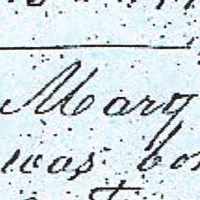 Mary
was bo